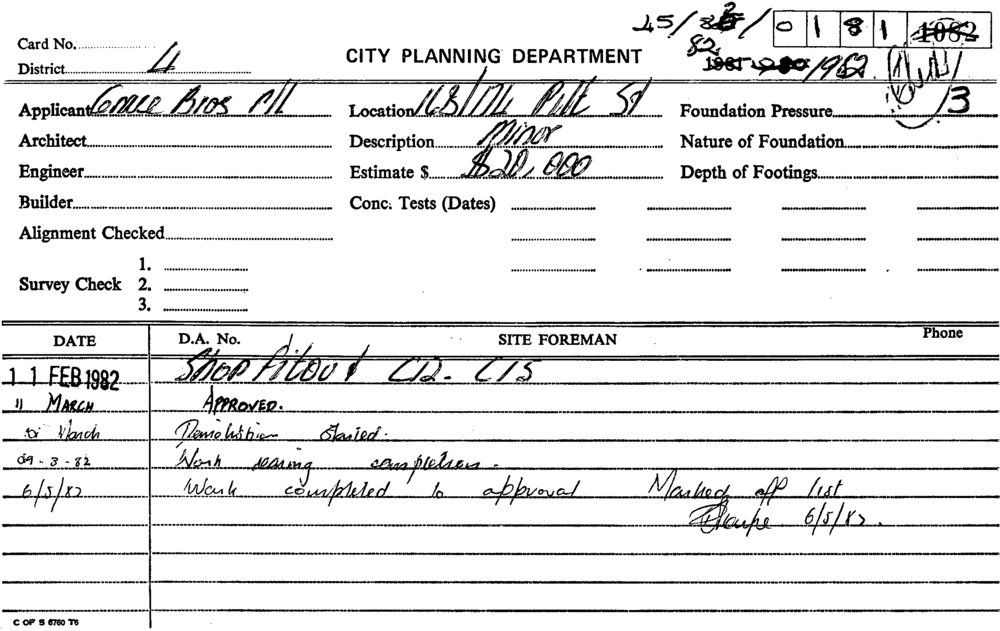 45/82/ 0 1 8 1 1082
Card No.
CITY PLANNING DEPARTMENT
82 1981 1980 1982
District 4
Applicant Grace Bros P/L Location 168/174 Pitt St Foundation Pressure 3
Architect Description Minor Nature of Foundation
Engineer Estimate $ $20,000 Depth of Footings
Builder Conc. Tests (Dates)
Alignment Checked
1.
Survey Check 2.
3.
DATE D.A. No. SITE FOREMAN Phone
11 FEB 1982 Shop Fitout C12 - C15
11 MARCH APPROVED.
March Demolition Started.
09-3-82 Work nearing completion.
6/5/82 Work completed to approval Marked off list
6/5/82.
C OF S 6760 T6